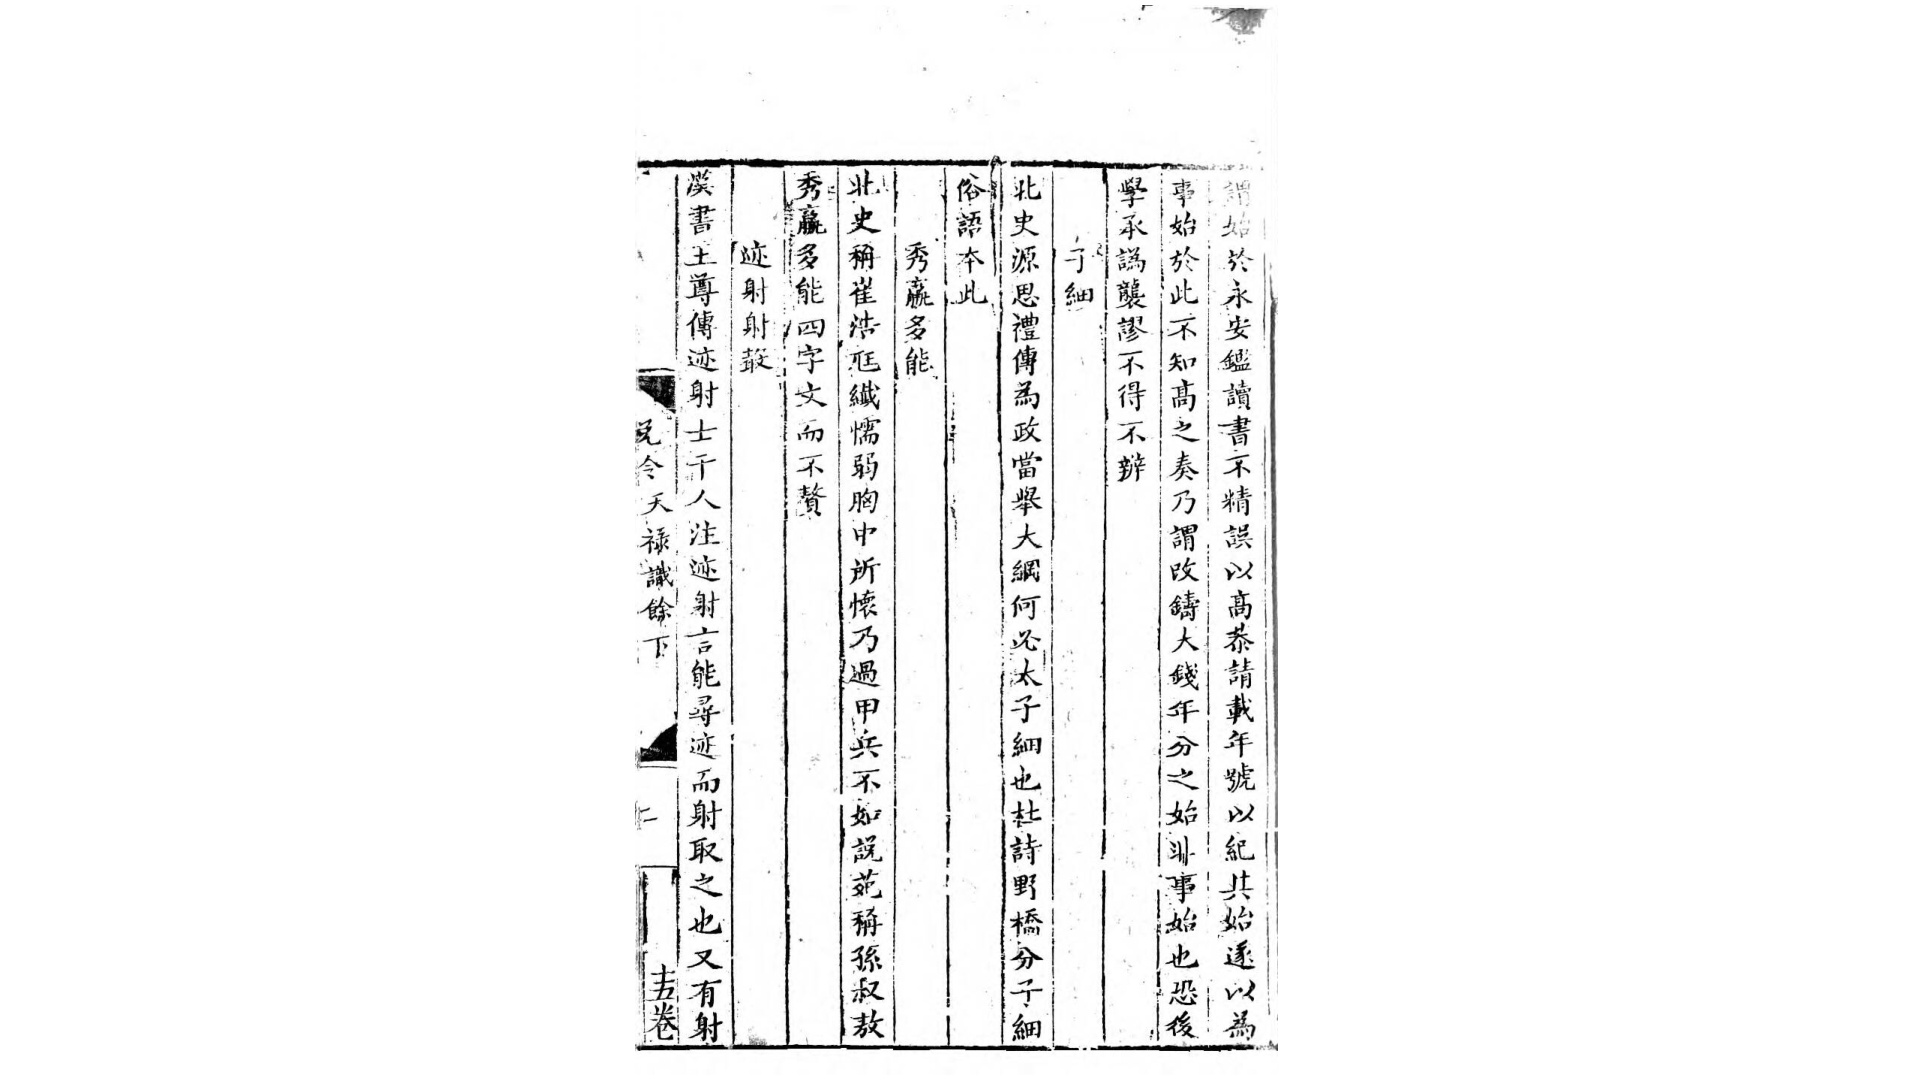 謂始於永安鑑讀書不精誤以高恭請載年號以紀其始遂以為
事始於此不知高之奏乃謂改鑄大錢年分之始非事始也恐後
學承譌襲謬不得不辨
子細
北史源思禮傳為政當舉大綱何必太子細也杜詩野橋分子細
俗語本此
秀羸多能
北史稱崔浩尫纖懦弱胸中所懷乃過甲兵不如說苑稱孫叔敖
秀羸多能四字文而不贅
迹射射聲
漢書王尊傳迹射士千人注迹射言能尋迹而射取之也又有射
兌令天禄識餘下
仁
十五卷